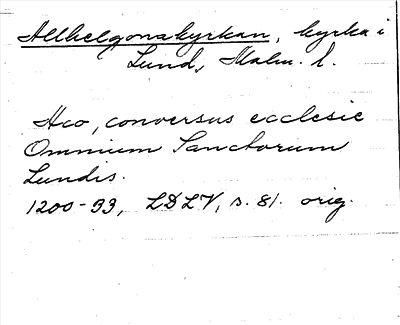 Allhelgonakyrkan, kyrka i
Lund, Malm. l.
Aco, conversus ecclesie
Omnium Sanctorum
Lundis.
1200-99, LDLV, s. 81. orig.